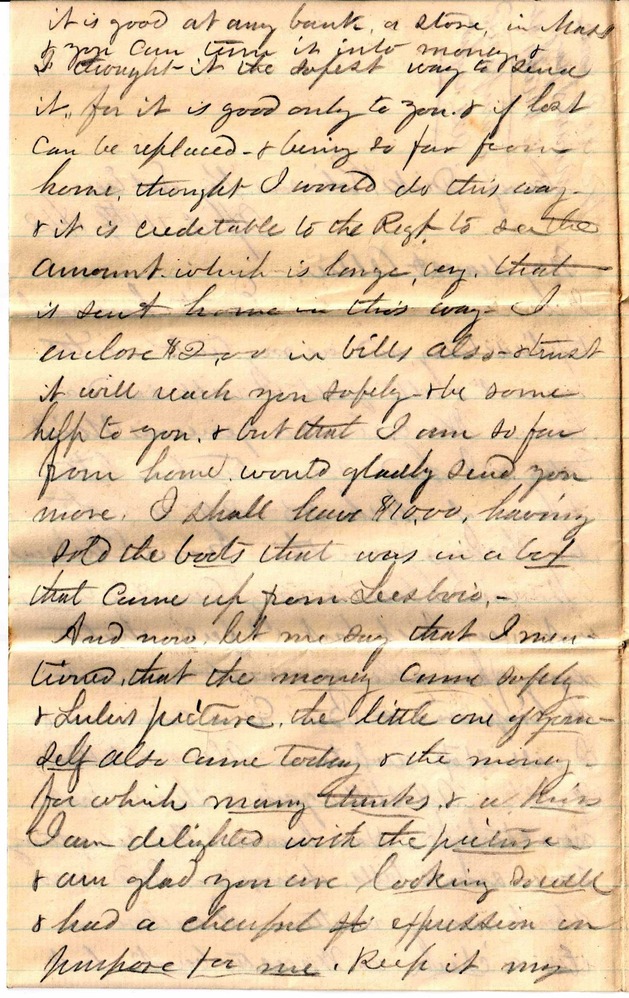 it is good at any bank, a store, in Mass
& you can turn it into money &
I thought it the safest way to send
it, for it is good only to you. & if lost
can be replaced - & being so far from
home, thought I would do this way -
& it is credetable to the Regt. to see the
amount which is large, very, that
is sent home in this way - I
enclose $2,00 in bills also - & trust
it will reach you safely - & be some
help to you, & but that I am so far
from home, would gladly send you
more. I shall have $10,00, having
sold the boots that was in a box
that came up from
And now let me say that I men-
tioned, that the money came safely
& Lulus picture, the little one of your-
self also came today & the money -
for which many thanks, & a kiss
I am delighted with the picture
& am glad you are looking so well
& had a cheerful expression on
purpose for me. Keep it my